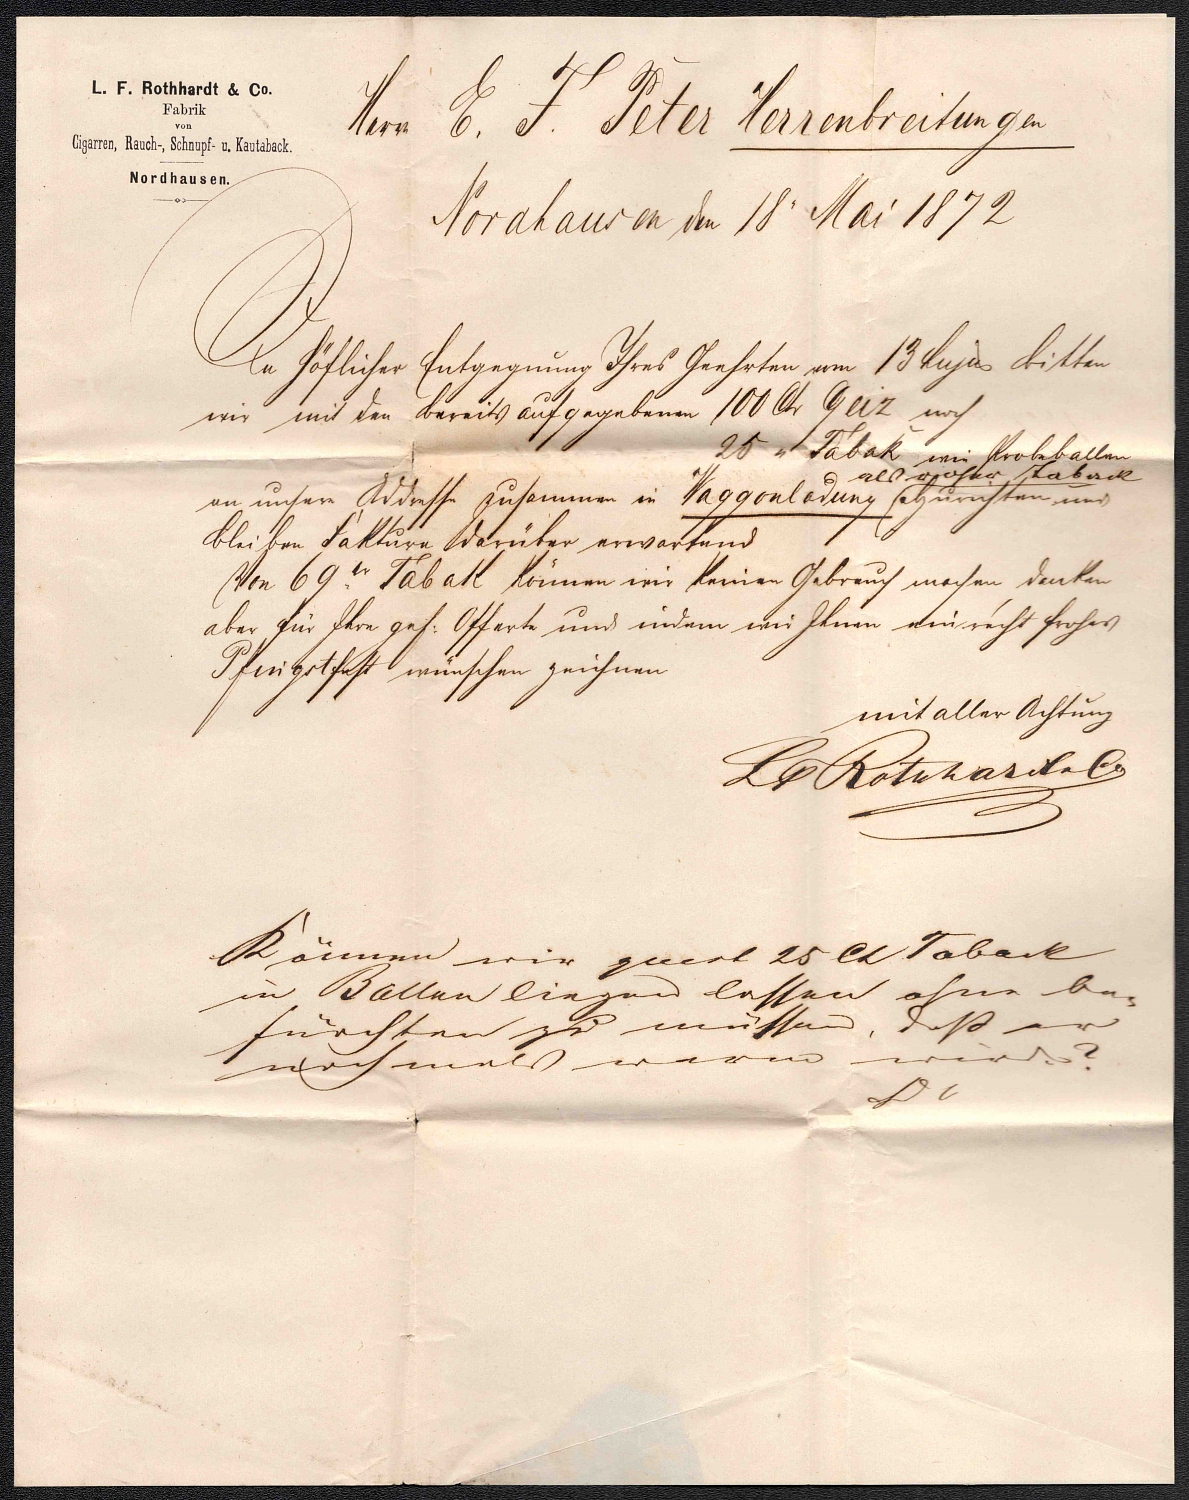 L. F. Rothhardt & Co.
Fabrik
von
Cigarren, Rauch-, Schnupf- u. Kautaback.
Nordhausen.
Herrn E. F. Peter Herrenbreitungen
Nordhausen den 18' Mai 1872
In höflicher Entgegnung Ihres Geehrten vom 13 hujus bitten
wir mit den bereits aufgegebenen 100 Ctr Geiz noch
25 " Tabak wie Probeballen
als roher Taback
an unsere Addresse zusammen in Waggonladung abzurichten und
bleiben Faktura darüber erwartend
Von 69er Tabak können wir keinen Gebrauch machen danken
aber für Ihre gef: Offerte und indem wir Ihnen ein recht frohes
Pfingstfest wünschen zeichnen
mit aller Achtung
LF Rothhardt & Co
Können wir quest 25 Ct Taback
in Ballen liegend lassen ohne be=
fürchten zu müssen, daß er
nochmals warm wird?